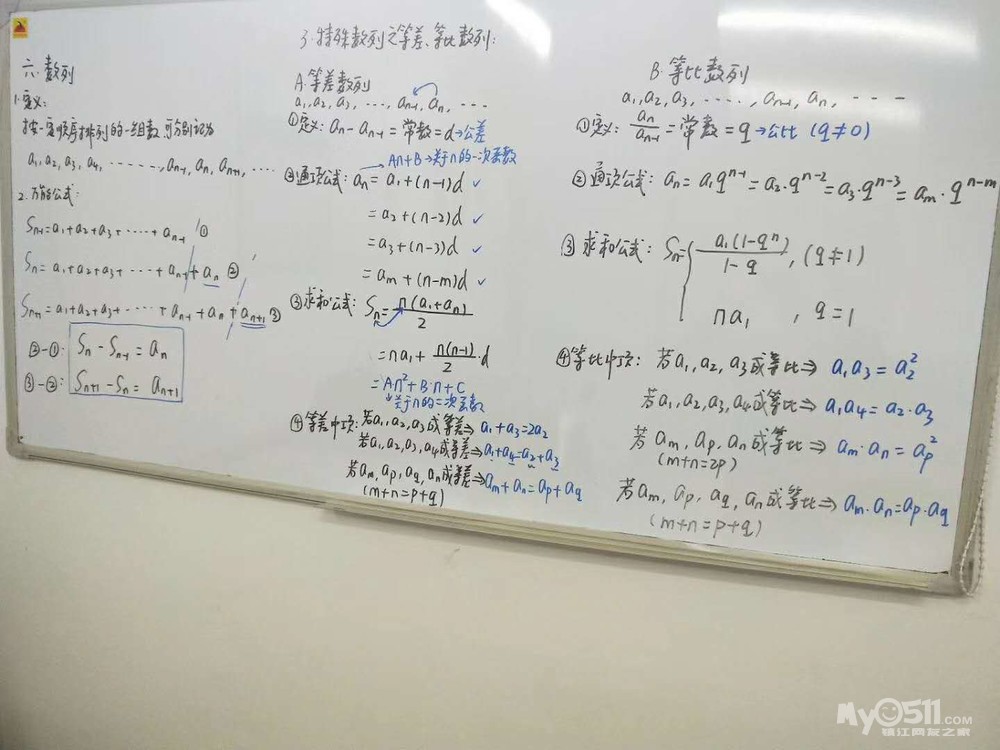 六.数列
1.定义:
按一定顺序排列的一组数,可分别记为
a₁,a₂,a₃,a₄,……,aₙ₋₁,aₙ,aₙ₊₁,…
2.万能公式:
Sₙ₋₁=a₁+a₂+a₃+……+aₙ₋₁ ①
Sₙ=a₁+a₂+a₃+……+aₙ₋₁+aₙ ②
Sₙ₊₁=a₁+a₂+a₃+……+aₙ₋₁+aₙ+aₙ₊₁ ③
②-①: Sₙ-Sₙ₋₁=aₙ
③-②: Sₙ₊₁-Sₙ=aₙ₊₁
3.特殊数列之等差、等比数列:
A.等差数列
a₁,a₂,a₃,…,aₙ₋₁,aₙ,…
①定义: aₙ-aₙ₋₁=常数=d→公差
An+B→关于n的一次函数
②通项公式: aₙ=a₁+(n-1)d ✓
=a₂+(n-2)d ✓
=a₃+(n-3)d ✓
=aₘ+(n-m)d ✓
③求和公式: Sₙ=n(a₁+aₙ)/2
=na₁+n(n-1)/2·d
=An²+B·n+C
↓关于n的二次函数
④等差中项:若a₁,a₂,a₃成等差⇒a₁+a₃=2a₂
若a₁,a₂,a₃,a₄成等差⇒a₁+a₄=a₂+a₃
若aₘ,aₚ,a_q,aₙ成等差⇒aₘ+aₙ=aₚ+a_q
(m+n=p+q)
B.等比数列
a₁,a₂,a₃,……,aₙ₋₁,aₙ,…
①定义: aₙ/aₙ₋₁=常数=q→公比(q≠0)
②通项公式: aₙ=a₁qⁿ⁻¹=a₂·qⁿ⁻²=a₃·qⁿ⁻³=aₘ·qⁿ⁻ᵐ
③求和公式: Sₙ={a₁(1-qⁿ)/1-q,(q≠1)
na₁,q=1
④等比中项:若a₁,a₂,a₃成等比⇒a₁a₃=a₂²
若a₁,a₂,a₃,a₄成等比⇒a₁a₄=a₂·a₃
若aₘ,aₚ,aₙ成等比⇒aₘ·aₙ=aₚ²
(m+n=2p)
若aₘ,aₚ,a_q,aₙ成等比⇒aₘ·aₙ=aₚ·a_q
(m+n=p+q)
My0511.com
镇江网友之家